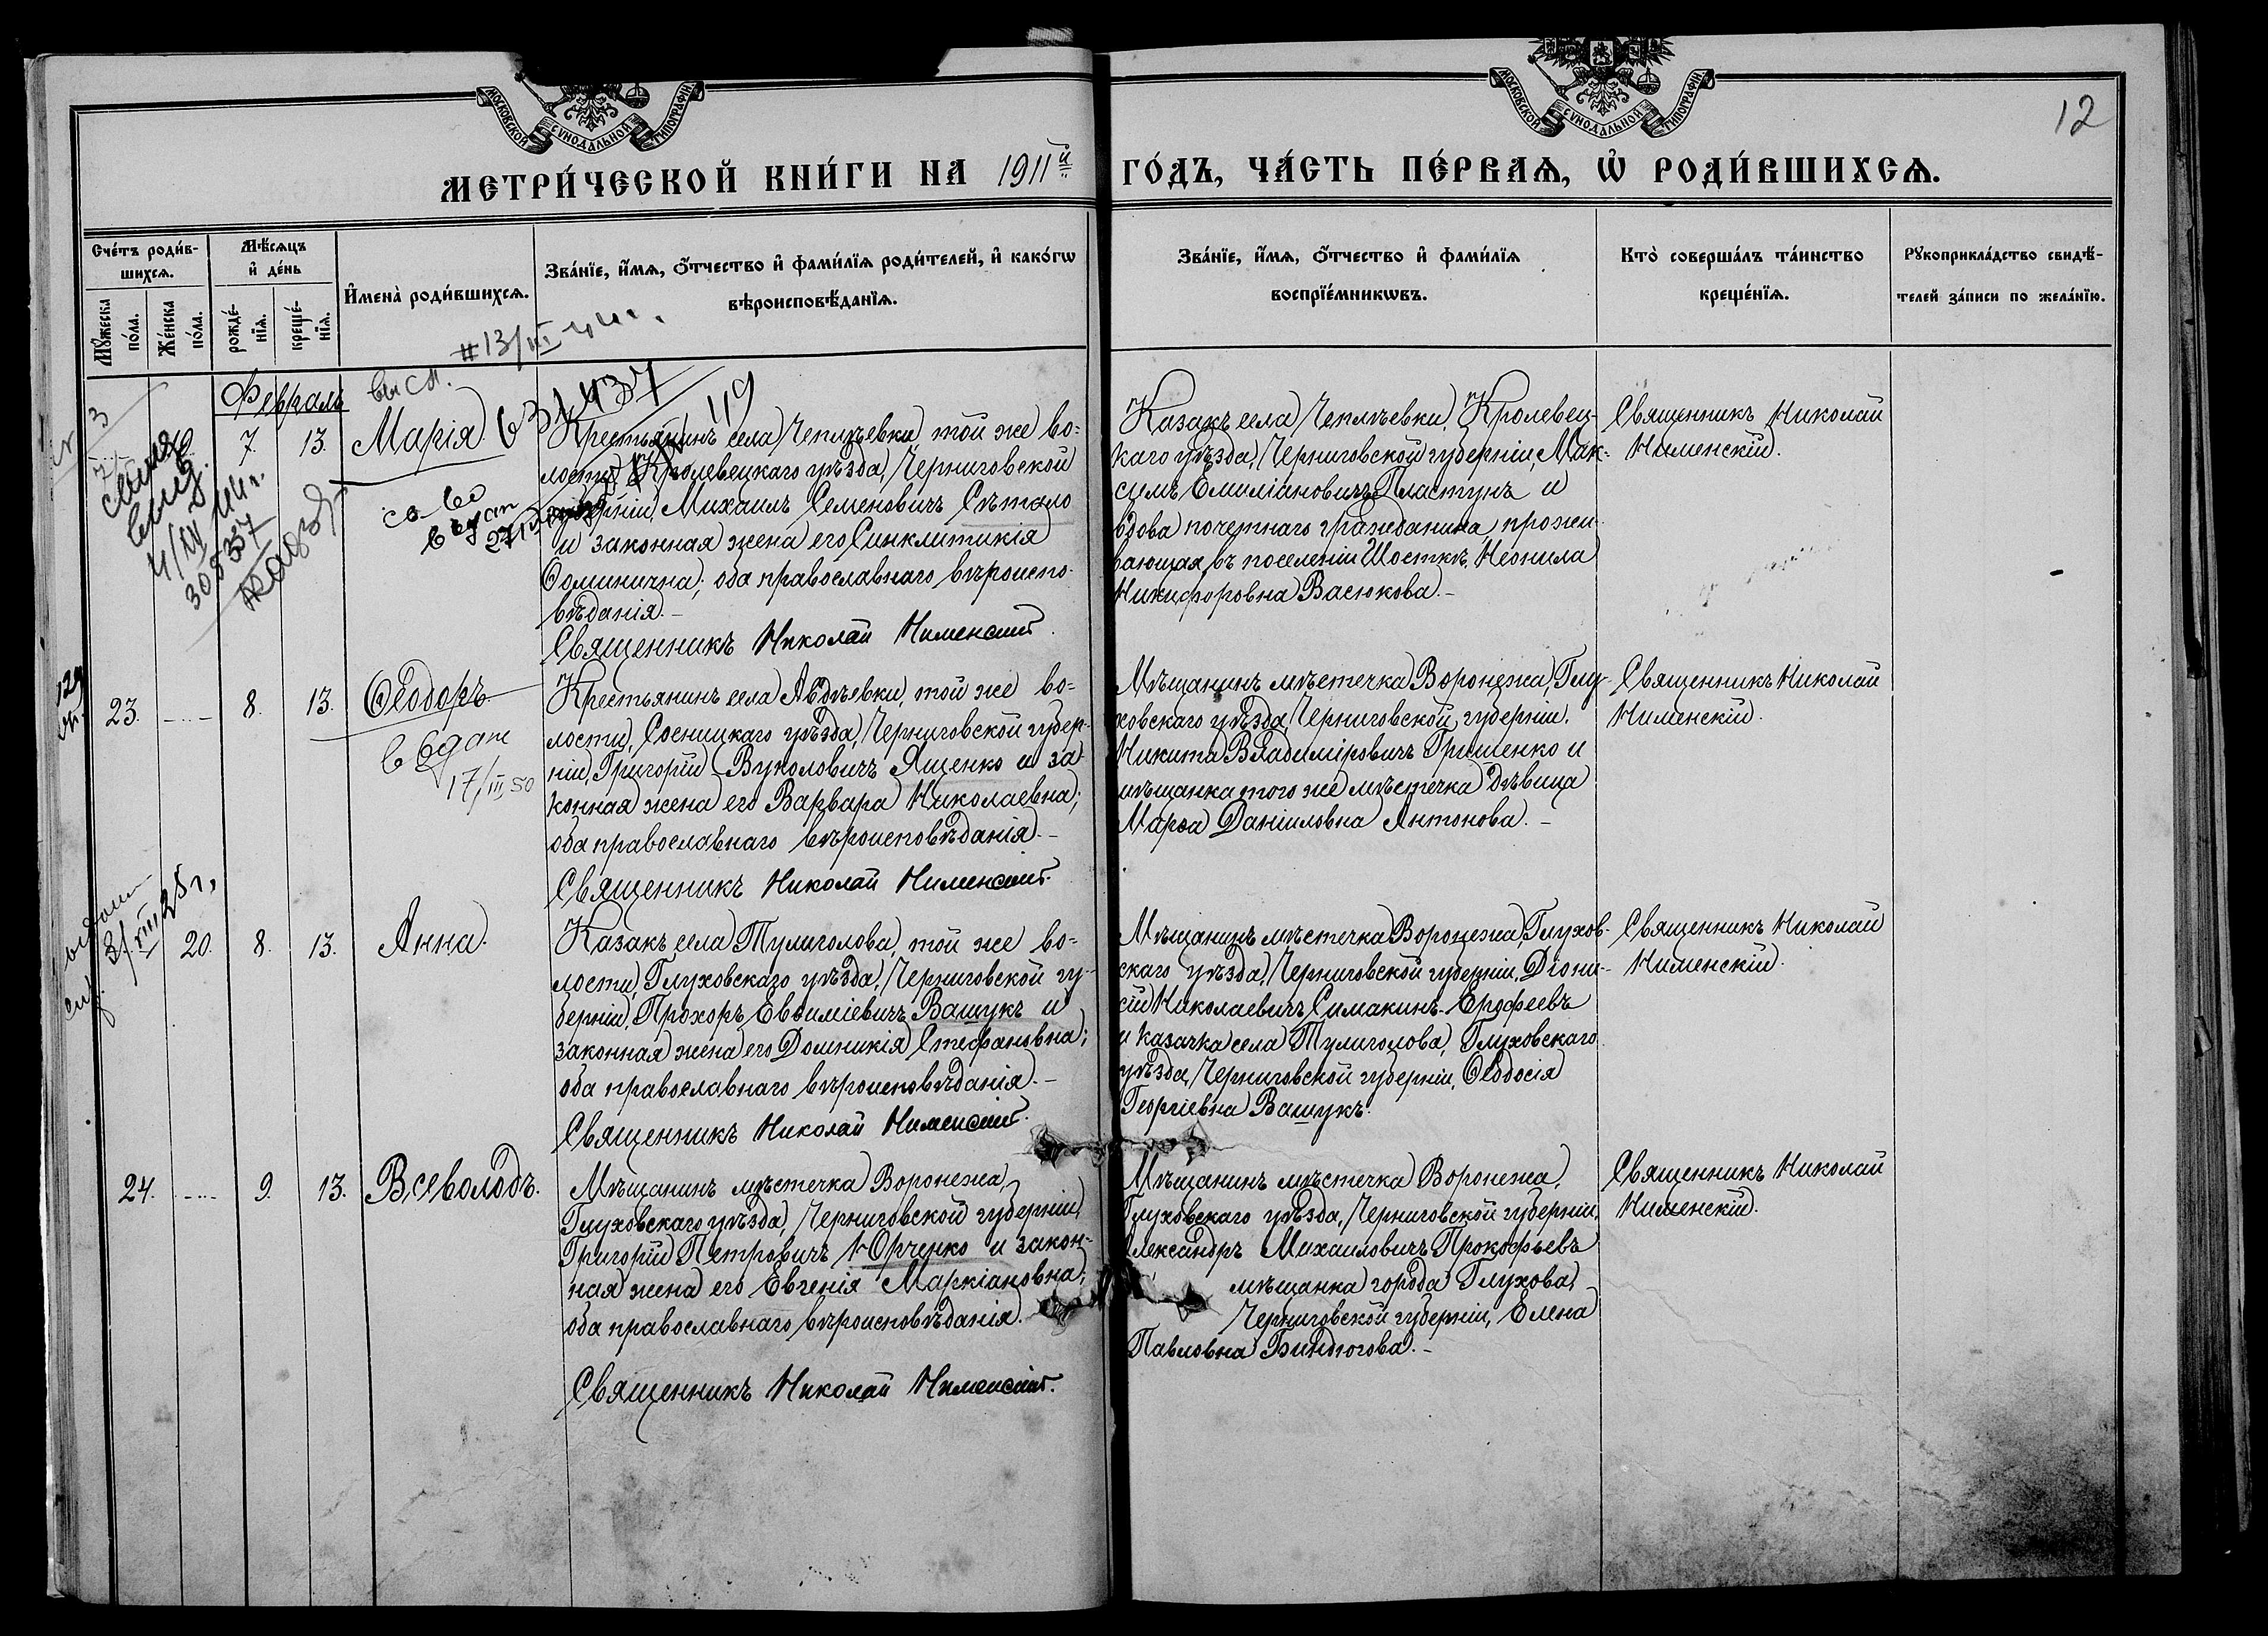 МОСКОВСКОЙ СѴНОДАЛЬНОЙ ТИПОГРАФІИ
МОСКОВСКОЙ СѴНОДАЛЬНОЙ ТИПОГРАФІИ
12
МЕТРИ́ЧЕСКОЙ КНИ́ГИ НА 1911й ГО́ДЪ, ЧА́СТЬ ПЕ́РВАѦ, Ѡ РОДИ́ВШИХСѦ.
Сче́тъ роди́в-
шихсѧ.
Мꙋ́жеска по́ла.
Же́нска по́ла.
Мѣ́сѧцъ
и҆ де́нь
рожде́-
нїѧ.
креще́-
нїѧ.
И҆мена̀ роди́вшихсѧ.
Зва́нїе, и҆́мѧ, ѻ҆́тчество и҆ фами́лїѧ роди́телей, и҆ како́гѡ
вѣроисповѣ́данїѧ.
Зва́нїе, и҆́мѧ, ѻ҆́тчество и҆ фами́лїѧ
воспрїе́мникѡвъ.
Кто̀ соверша́лъ та́инство
креще́нїѧ.
Рꙋкоприкла́дство свидѣ́-
телей за́писи по жела́нїю.
Февраль
7. 13. Марія.
Крестьянинъ села Чеплѣевки, той же во-
лости, Кролевецкаго уѣзда, Черниговской
губерніи, Михаилъ Семеновичъ Свѣтало
и законная жена его Синклитикія
Ѳоминична; оба православнаго вѣроиспо-
вѣданія.-
Священникъ Николай Нименскій.
Казакъ села Чеплѣевки, Кролевец-
каго уѣзда, Черниговской губерніи, Мак-
симъ Емиліановичъ Пластунъ и
вдова почетнаго гражданина, прожи-
вающая въ поселеніи Шосткѣ, Неонила
Никифоровна Васюкова.-
Священникъ Николай
Нименскій.
23. 8. 13. Ѳеодоръ
видан
17/III 50
Крестьянинъ села Авдѣевки, той же во-
лости, Сосницкаго уѣзда, Черниговской губер-
ніи, Григорій Вуколовичъ Ященко и за-
конная жена его Варвара Николаевна;
оба православнаго вѣроисповѣданія.-
Священникъ Николай Нименскій.
Мѣщанинъ мѣстечка Воронежа, Глу-
ховскаго уѣзда, Черниговской губерніи,
Никита Владиміровичъ Гришенко и
мѣщанка того же мѣстечка дѣвица
Марѳа Даніиловна Антонова.-
Священникъ Николай
Нименскій.
31/VIII 25 г.
20. 8. 13. Анна.
Казакъ села Тулиголова, той же во-
лости, Глуховскаго уѣзда, Черниговской гу-
берніи, Прохоръ Евѳиміевичъ Вашукъ и
законная жена его Домникія Стефановна;
оба православнаго вѣроисповѣданія.-
Священникъ Николай Нименскій.
Мѣщанинъ мѣстечка Воронежа, Глухов-
скаго уѣзда, Черниговской губерніи, Діони-
сій Николаевичъ Симакинъ-Ерофеевъ
и казачка села Тулиголова, Глуховскаго
уѣзда, Черниговской губерніи, Ѳеодосія
Георгіевна Вашукъ.
Священникъ Николай
Нименскій.
24. 9. 13. Всеволодъ.
Мѣщанинъ мѣстечка Воронежа,
Глуховскаго уѣзда, Черниговской губерніи,
Григорій Петровичъ Юрченко и закон-
ная жена его Евгенія Маркіановна;
оба православнаго вѣроисповѣданія.
Священникъ Николай Нименскій.
Мѣщанинъ мѣстечка Воронежа,
Глуховскаго уѣзда, Черниговской губерніи,
лександръ Михаиловичъ Прокофьевъ
мѣщанка города Глухова,
Черниговской губерніи, Елена
Павловна Биндюгова.-
Священникъ Николай
Нименскій.